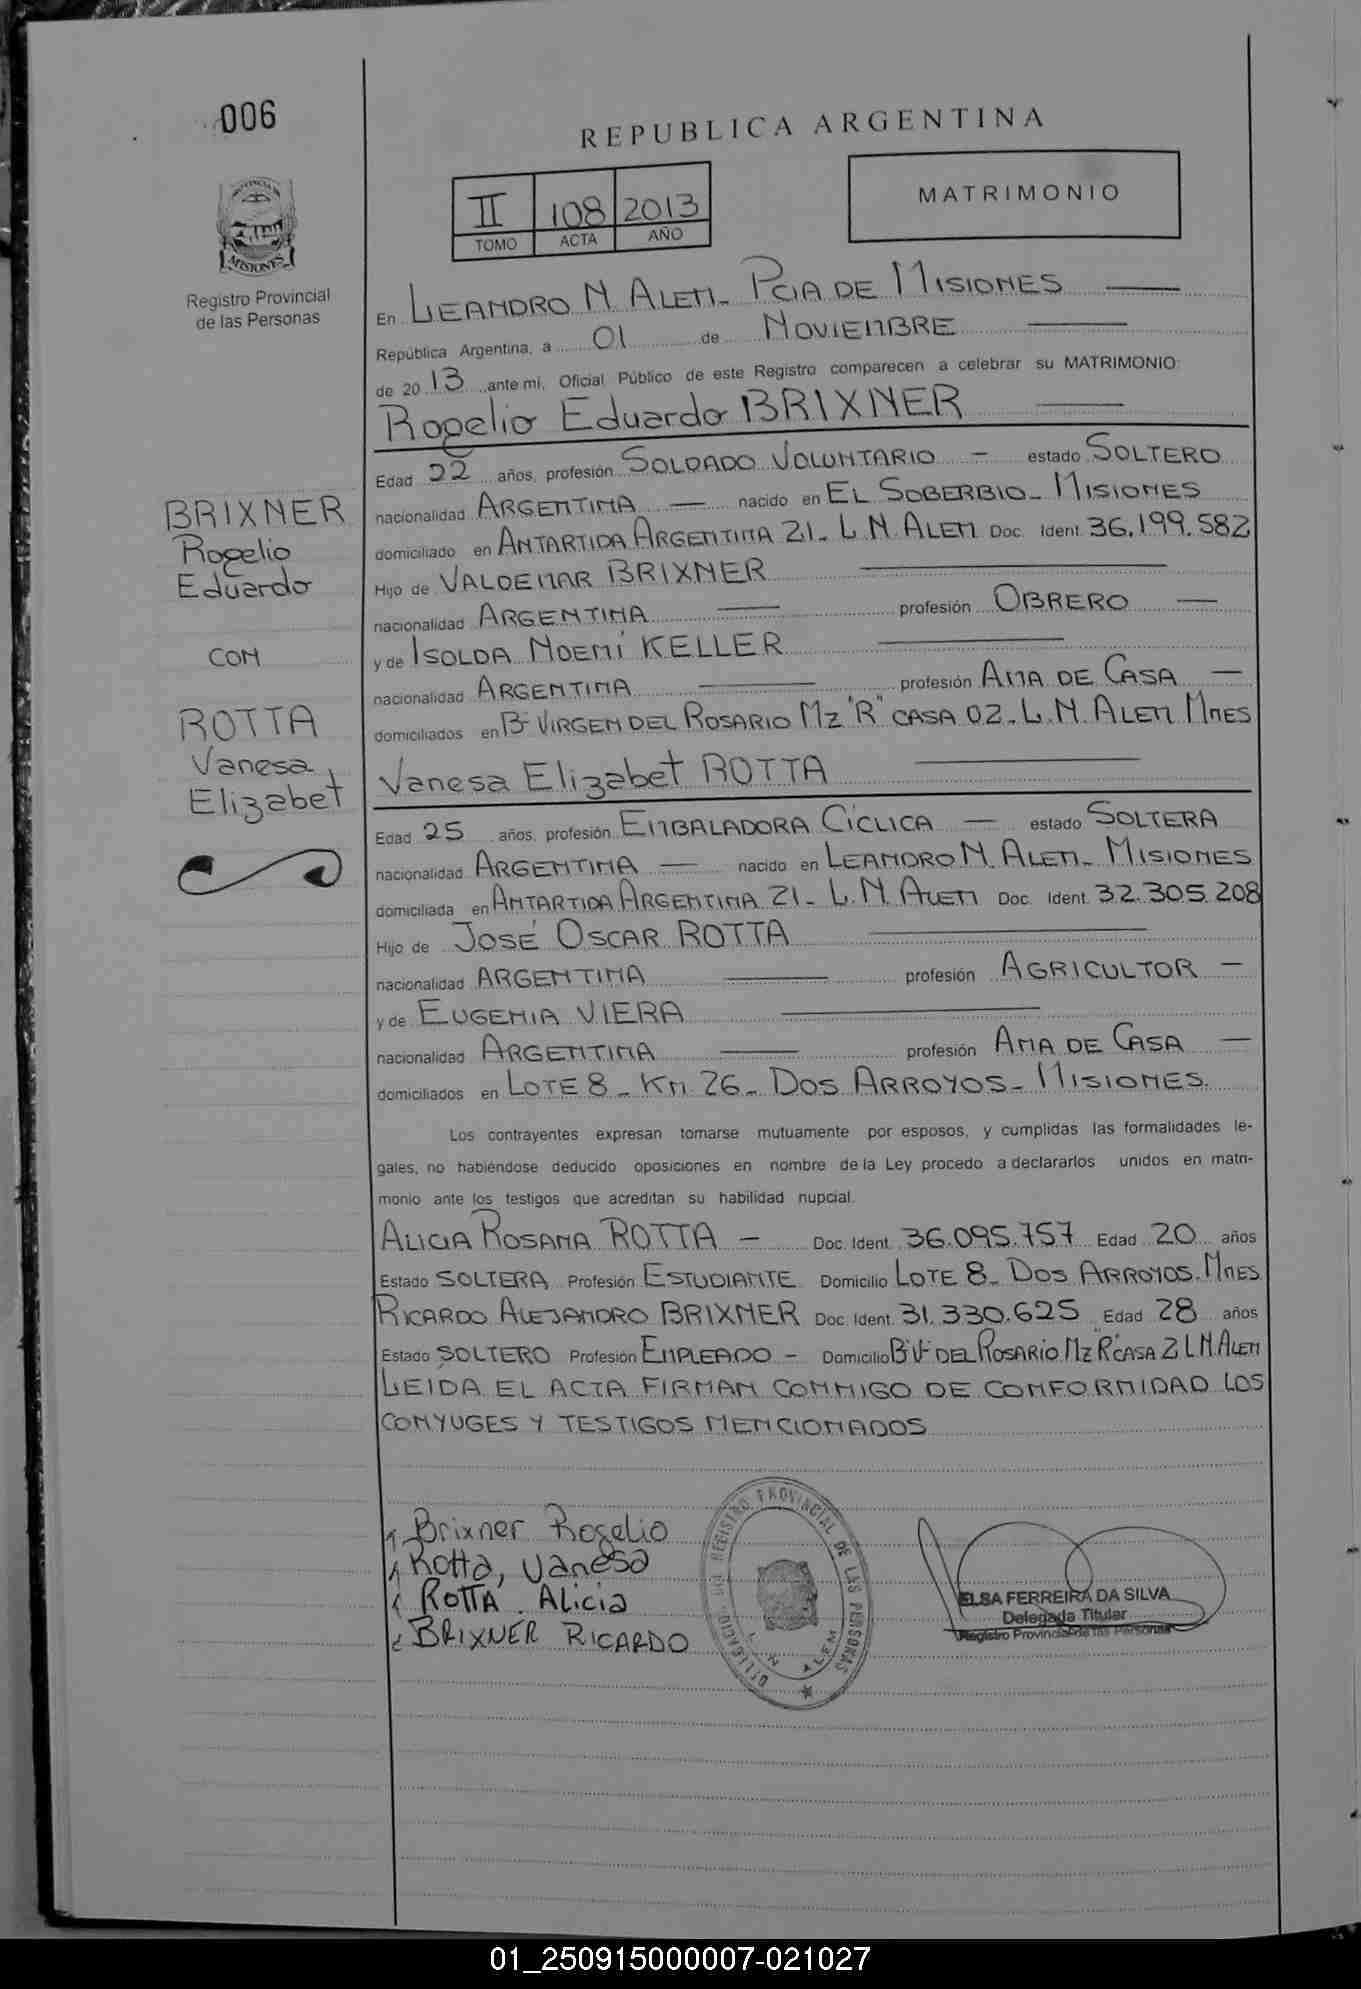 006
REPUBLICA ARGENTINA
II 108 2013
TOMO ACTA AÑO
MATRIMONIO
PROVINCIA DE
MISIONES
Registro Provincial
de las Personas
En LEANDRO N. ALEM - PCIA DE MISIONES
República Argentina, a 01 de NOVIEMBRE
de 2013 ante mi, Oficial Público de este Registro comparecen a celebrar su MATRIMONIO:
Rogelio Eduardo BRIXNER
Edad 22 años, profesión SOLDADO VOLUNTARIO - estado SOLTERO
nacionalidad ARGENTINA — nacido en EL SOBERBIO - MISIONES
domiciliado en ANTARTIDA ARGENTINA 21 - L.N. ALEM Doc. Ident. 36.199.582
Hijo de VALDEMAR BRIXNER
nacionalidad ARGENTINA — profesión OBRERO —
y de ISOLDA NOEMÍ KELLER
nacionalidad ARGENTINA — profesión AMA DE CASA —
domiciliados en B° VIRGEN DEL ROSARIO MZ "R" CASA 02 - L.N. ALEM MNES
BRIXNER
Rogelio
Eduardo
CON
ROTTA
Vanesa
Elizabet
Vanesa Elizabet ROTTA
Edad 25 años, profesión EMBALADORA CÍCLICA — estado SOLTERA
nacionalidad ARGENTINA — nacido en LEANDRO N. ALEM - MISIONES
domiciliada en ANTARTIDA ARGENTINA 21 - L.N. ALEM Doc. Ident. 32.305.208
Hijo de JOSÉ OSCAR ROTTA
nacionalidad ARGENTINA — profesión AGRICULTOR —
y de EUGENIA VIERA
nacionalidad ARGENTINA — profesión AMA DE CASA —
domiciliados en LOTE 8 - KM 26 - DOS ARROYOS - MISIONES.
Los contrayentes expresan tomarse mutuamente por esposos, y cumplidas las formalidades le-
gales, no habiéndose deducido oposiciones en nombre de la Ley procedo a declararlos unidos en matri-
monio ante los testigos que acreditan su habilidad nupcial.
ALICIA ROSANA ROTTA — Doc. Ident. 36.095.757 Edad 20 años
Estado SOLTERA Profesión ESTUDIANTE Domicilio LOTE 8 - DOS ARROYOS. MNES
RICARDO ALEJANDRO BRIXNER Doc. Ident. 31.330.625 Edad 28 años
Estado SOLTERO Profesión EMPLEADO - Domicilio B° V. DEL ROSARIO MZ "R" CASA 2 L N ALEM
LEIDA EL ACTA FIRMAN CONMIGO DE CONFORMIDAD LOS
CONYUGES Y TESTIGOS MENCIONADOS
Brixner Rogelio
Rotta, Vanesa
ROTTA Alicia
BRIXNER RICARDO
DELEGACIO DEL REGISTRO PROVINCIAL DE LAS PERSONAS
L. N. ALEM
ELSA FERREIRA DA SILVA
Delegada Titular
Registro Provincial de las Personas
01_250915000007-021027